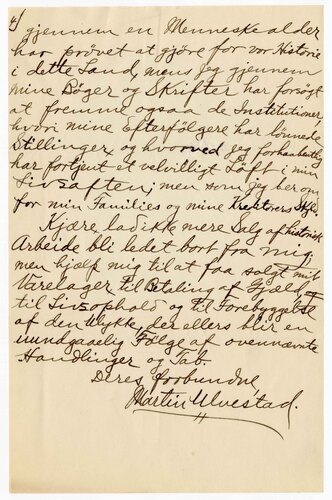 4)
gjennem en Menneskealder
har prøvet at gjøre for vor Historie
i dette Land, mens jeg gjennem
mine Bøger og Skrifter har forsøgt
at fremme ogsaa de Institutioner,
hvori mine Efterfølgere har lønnede
Stillinger, og hvorved jeg forhaabentlig
har fortjent et velvilligt Løft i min
Livsaften; men som jeg ber om
for min Families og mine Kreditorers Skyld.
Kjære, lad ikke mere Salg af historisk
Arbeide bli ledet bort fra mig,
men hjælp mig til at faa solgt mit
Varelager til Betaling af Gjæld,
til Livsophold og til Forebyggelse
af den Ulykke, der ellers blir en
uundgaaelig Følge af ovennævnte
Handlinger og Tab.
Deres forbundne
Martin Ulvestad.